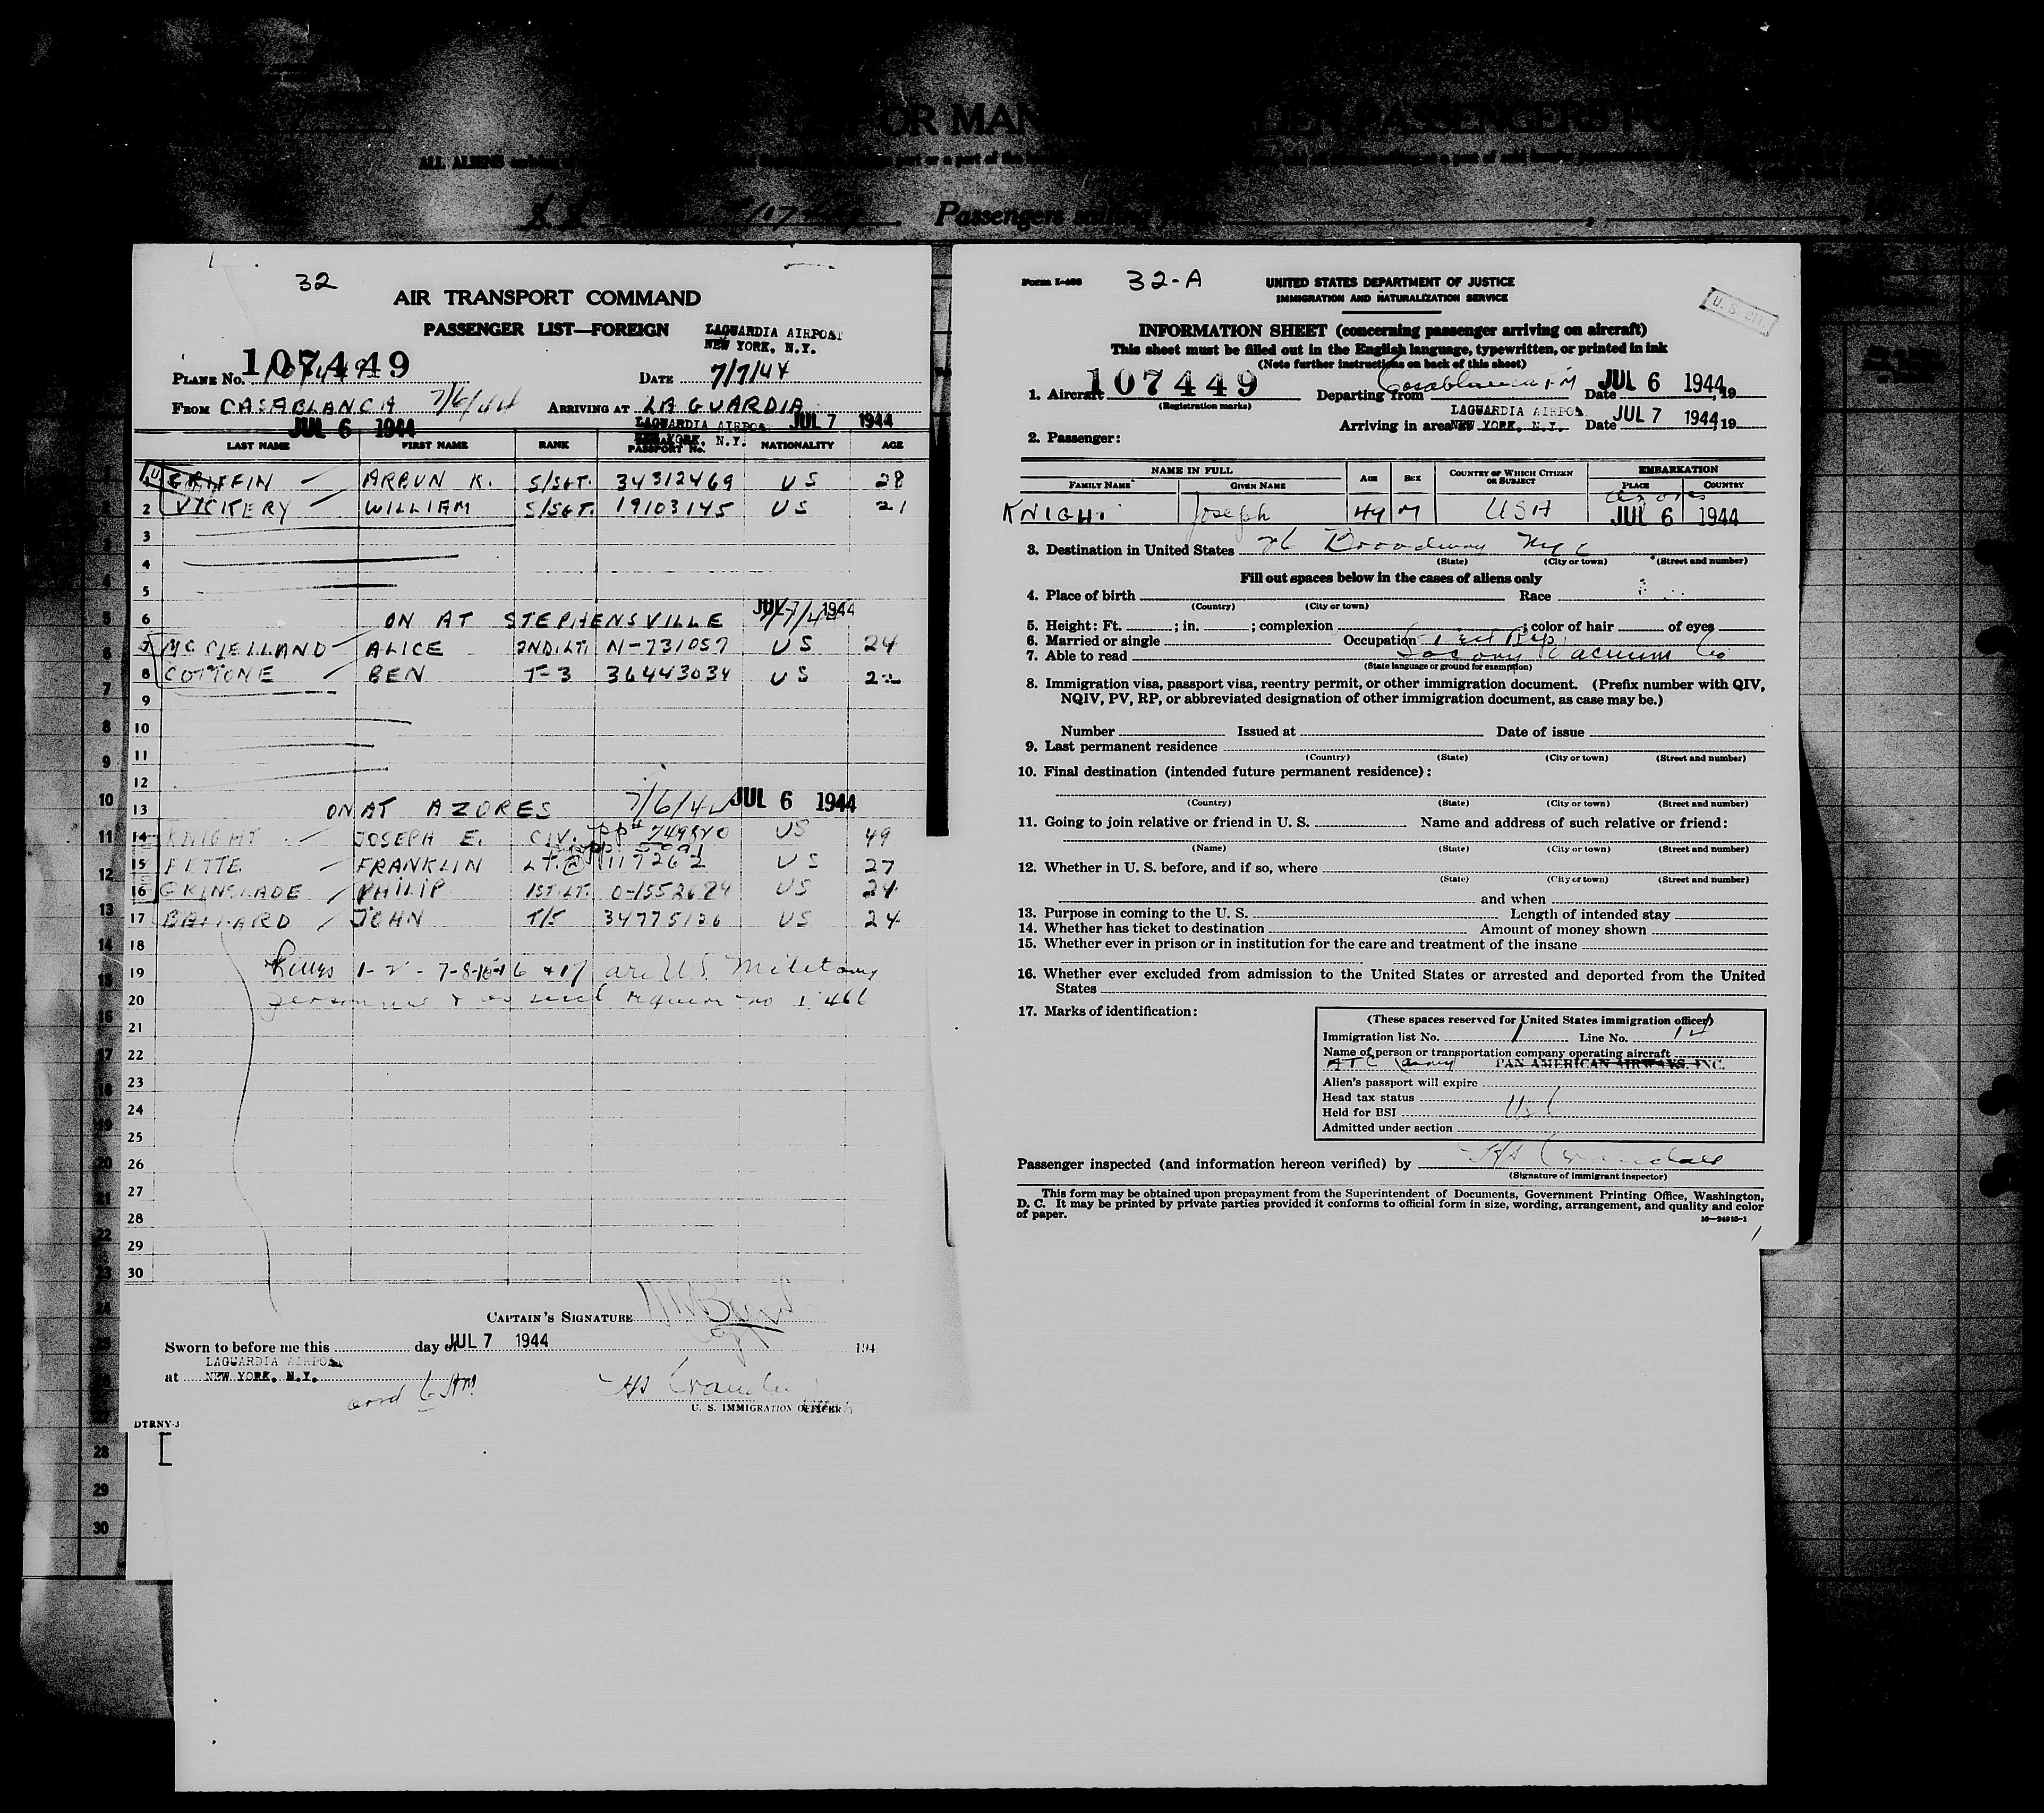 OR MAN
ALIEN PASSENGERS FOR
ALL ALIENS
S.S.
Passengers sailing from
32
AIR TRANSPORT COMMAND
PASSENGER LIST—FOREIGN
LAGUARDIA AIRPORT
NEW YORK, N.Y.
PLANE No. 107449
DATE 7/7/44
FROM CASABLANCA 7/6/44 ARRIVING AT LA GUARDIA
JUL 6 1944
LAGUARDIA AIRPORT JUL 7 1944
NEW YORK, N.Y.
LAST NAME FIRST NAME RANK PASSPORT No. NATIONALITY AGE
1 GRIFFIN ARBUN K. S/SGT. 34312469 US 28
2 VICKERY WILLIAM S/SGT. 19103145 US 21
3
4
5
6 ON AT STEPHENSVILLE 7/7/44 JUL 7 1944
7 MCCLELLAND ALICE 2ND.LT. N-731057 US 24
8 COTTONE BEN T-3 36443034 US 22
9
10
11
12
13 ON AT AZORES 7/6/44 JUL 6 1944
14 KNIGHT JOSEPH E. CIV. PP# 749840 US 49
15 FETTE FRANKLIN LT. 119262 US 27
16 GKINSLADE PHILIP 1ST.LT. O-1552624 US 24
17 BALLARD JOHN T/5 34775126 US 24
18
19 Lines 1-2-7-8-15-16 & 17 are U.S. Military
20 personnel & as such require no I 466
21
22
23
24
25
26
27
28
29
30
CAPTAIN'S SIGNATURE
Sworn to before me this day of JUL 7 1944 194
LAGUARDIA AIRPORT
at NEW YORK, N.Y.
HS Crandall
U. S. IMMIGRATION OFFICER
DTRNY-3
28
29
30
Form I-466 32-A
UNITED STATES DEPARTMENT OF JUSTICE
IMMIGRATION AND NATURALIZATION SERVICE
U. S. CIT
INFORMATION SHEET (concerning passenger arriving on aircraft)
This sheet must be filled out in the English language, typewritten, or printed in ink
(Note further instructions on back of this sheet)
1. Aircraft 107449 Departing from Casablanca FM Date JUL 6 1944, 19
(Registration marks)
LAGUARDIA AIRPORT
Arriving in area NEW YORK, N.Y. Date JUL 7 1944, 19
2. Passenger:
NAME IN FULL AGE SEX COUNTRY OF WHICH CITIZEN OR SUBJECT EMBARKATION
FAMILY NAME GIVEN NAME PLACE COUNTRY
KNIGHT Joseph 49 M USA Azores
JUL 6 1944
3. Destination in United States 26 Broadway NYC
(State) (City or town) (Street and number)
Fill out spaces below in the cases of aliens only
4. Place of birth Race
(Country) (City or town)
5. Height: Ft. ; in. ; complexion ; color of hair of eyes
6. Married or single Occupation
7. Able to read Socony Vacuum Co
(State language or ground for exemption)
8. Immigration visa, passport visa, reentry permit, or other immigration document. (Prefix number with QIV,
NQIV, PV, RP, or abbreviated designation of other immigration document, as case may be.)
Number Issued at Date of issue
9. Last permanent residence
(Country) (State) (City or town) (Street and number)
10. Final destination (intended future permanent residence):
(Country) (State) (City or town) (Street and number)
11. Going to join relative or friend in U. S. Name and address of such relative or friend:
(Name) (State) (City or town) (Street and number)
12. Whether in U. S. before, and if so, where
(State) (City or town) (Street and number)
and when
13. Purpose in coming to the U. S. Length of intended stay
14. Whether has ticket to destination Amount of money shown
15. Whether ever in prison or in institution for the care and treatment of the insane
16. Whether ever excluded from admission to the United States or arrested and deported from the United
States
17. Marks of identification:
(These spaces reserved for United States immigration officer)
Immigration list No. 1 Line No. 14
Name of person or transportation company operating aircraft
ATC PAN AMERICAN AIRWAYS, INC.
Alien's passport will expire
Head tax status
Held for BSI USC
Admitted under section
Passenger inspected (and information hereon verified) by HS Crandall
(Signature of immigrant inspector)
This form may be obtained upon prepayment from the Superintendent of Documents, Government Printing Office, Washington,
D. C. It may be printed by private parties provided it conforms to official form in size, wording, arrangement, and quality and color
of paper.
16—24915-1